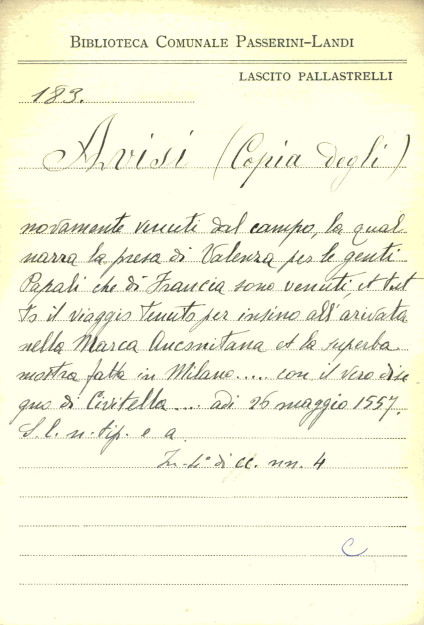 BIBLIOTECA COMUNALE PASSERINI-LANDI
LASCITO PALLASTRELLI
183.
Avisi (Copia degli)
novamente venuti dal campo, la qual
narra la presa di Valenza per le genti
Papali che di Francia sono venuti, et tut
to il viaggio tenuto per insino all'arivata
nella Marca Anconitana et la superba
mostra fatta in Milano.... con il vero dise
gno di Civitella.... adi 26 maggio 1557.
S. l. n. tip. e a.
In-4° di cc. nn. 4
C